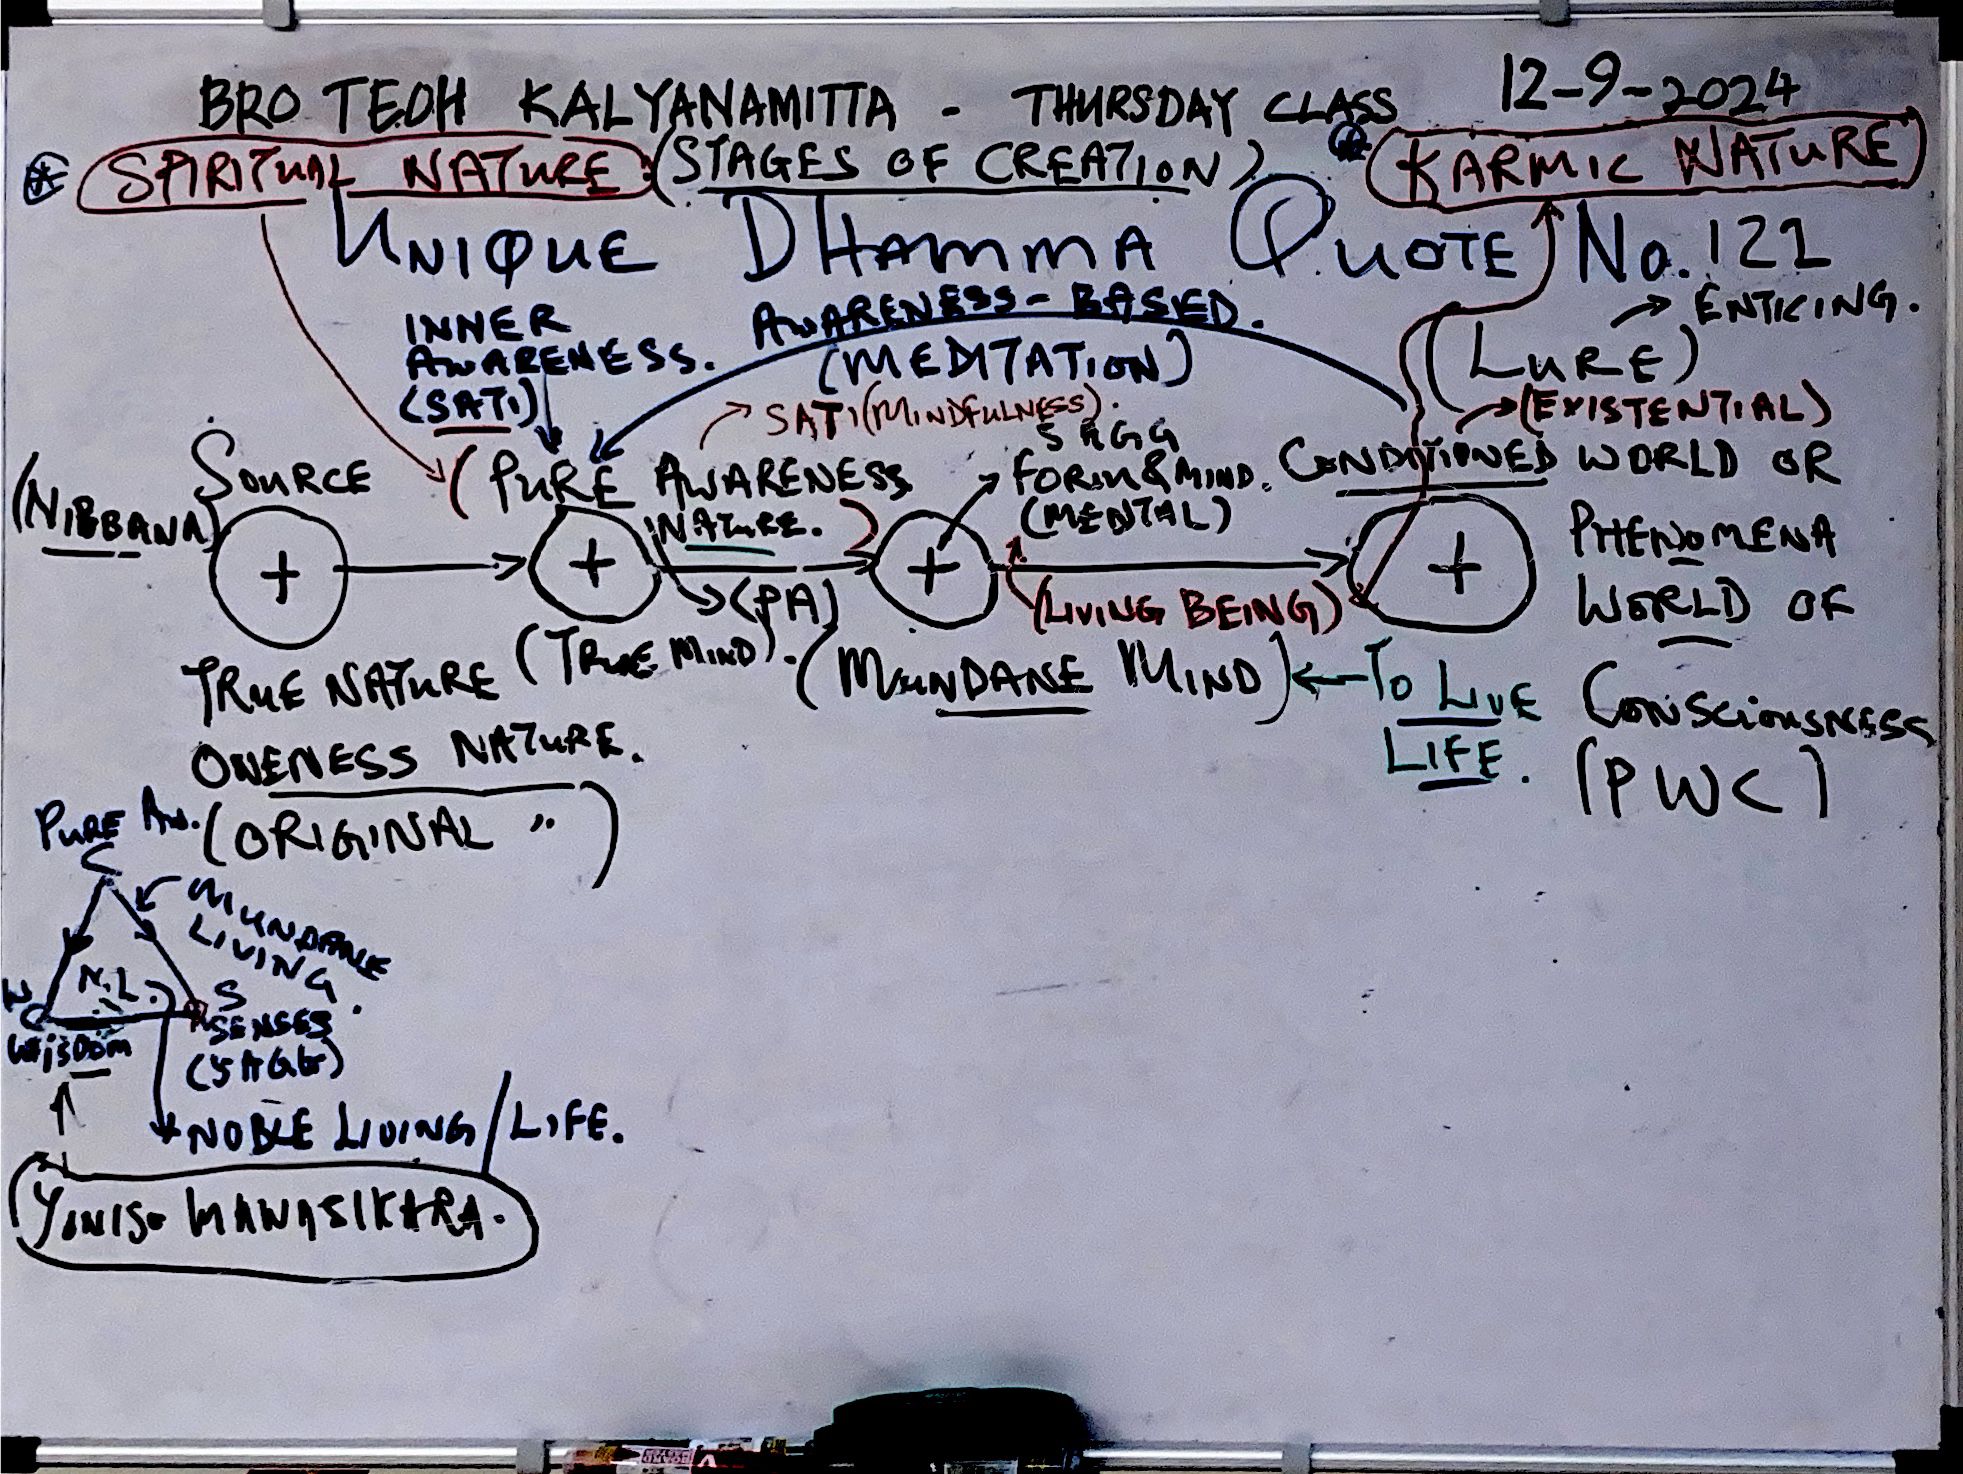 BRO TEOH KALYANAMITTA - THURSDAY CLASS 12-9-2024
SPIRITUAL NATURE: (STAGES OF CREATION) KARMIC NATURE
UNIQUE DHAMMA QUOTE No. 121
INNER AWARENESS. (SATI)
AWARENESS-BASED.
(MEDITATION)
(LURE) → ENTICING.
→ (EXISTENTIAL)
SATI (MINDFULNESS).
(NIBBANA)
SOURCE
(PURE AWARENESS NATURE.)
→ (PA)
5 AGG
FORM & MIND.
(MENTAL)
CONDITIONED WORLD OR
PHENOMENA
WORLD OF
CONSCIOUSNESS
(PWC)
(LIVING BEING)
TRUE NATURE (TRUE MIND). (MUNDANE MIND) ← TO LIVE
LIFE.
ONENESS NATURE.
(ORIGINAL ")
PURE AW.
MUNDANE
LIVING.
N.L.
W
WISDOM
S
SENSES
(5 AGG)
NOBLE LIVING/LIFE.
YONISO MANASIKARA.